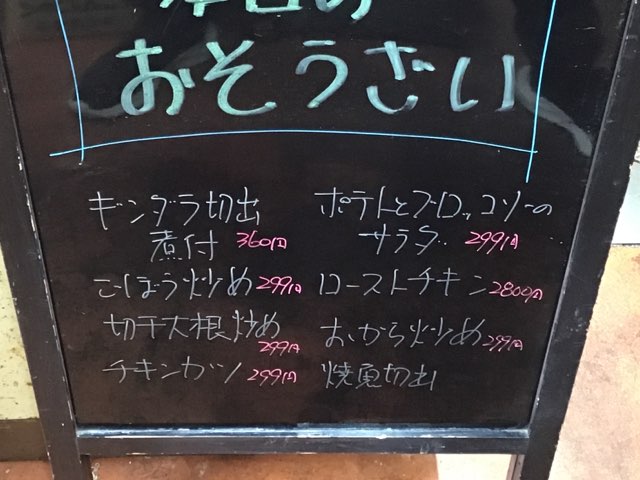 本日の
おそうざい
ギンダラ切出
煮付 360円
ごぼう炒め 299円
切干大根炒め
299円
チキンカツ 299円
ポテトとブロッコリーの
サラダ 299円
ローストチキン 2800円
おから炒め 299円
焼魚切出